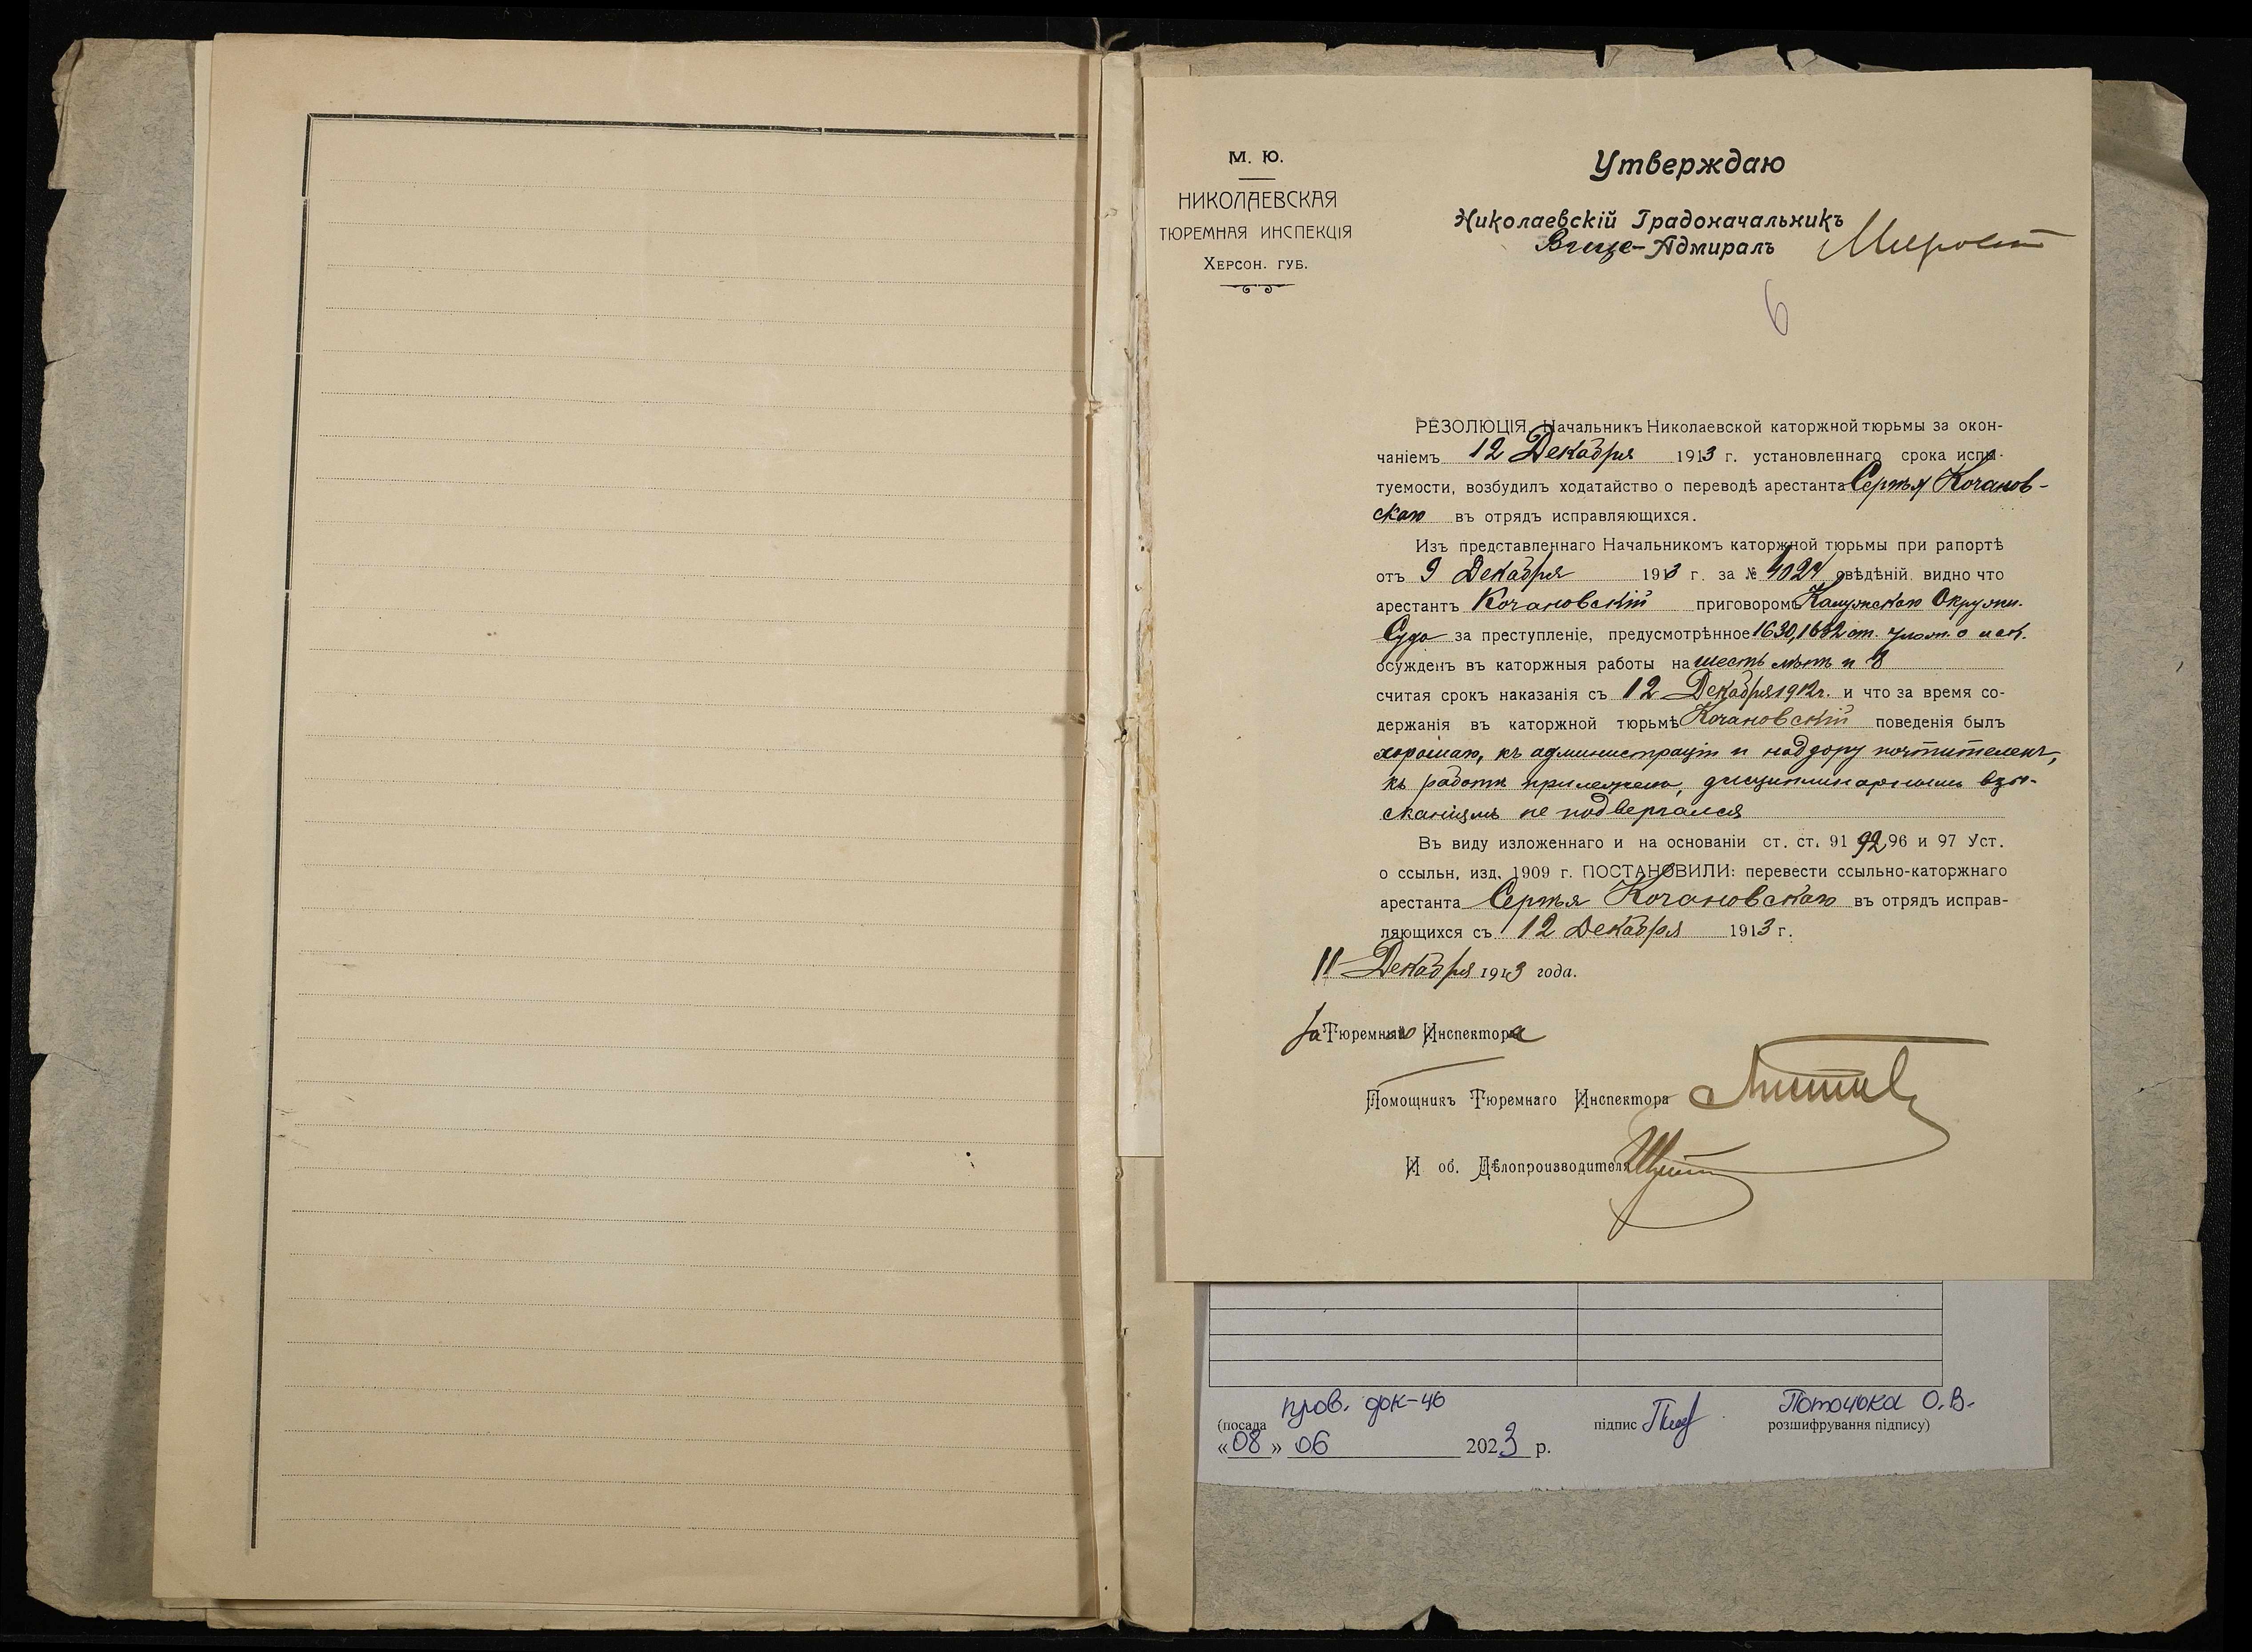 М. Ю.
НИКОЛАЕВСКАЯ
ТЮРЕМНАЯ ИНСПЕКЦІЯ
ХЕРСОН. ГУБ.
Утверждаю
Николаевскій Градоначальникъ
Вице-Адмиралъ
6
РЕЗОЛЮЦІЯ, Начальникъ Николаевской каторжной тюрьмы за окон-
чаніемъ 12 Декабря 1913 г. установленнаго срока испы-
туемости, возбудилъ ходатайство о переводѣ арестанта Сергѣя Кочанов-
скаго въ отрядъ исправляющихся.
Изъ представленнаго Начальникомъ каторжной тюрьмы при рапортѣ
отъ 9 Декабря 1913 г. за № свѣдѣній видно что
арестантъ Кочановскій приговоромъ Калужскаго Окружн.
Суда за преступленіе, предусмотрѣнное 1630, 1632 ст. улож. о нак.
осужденъ въ каторжныя работы на шесть лѣтъ и
считая срокъ наказанія съ 12 Декабря 1912 г. и что за время со-
держанія въ каторжной тюрьмѣ Кочановскій поведенія былъ
хорошаго, къ администраціи и надзору почтителенъ,
къ работѣ прилеженъ, дисциплинарнымъ взы-
сканіямъ не подвергался
Въ виду изложеннаго и на основаніи ст. ст. 91 92, 96 и 97 Уст.
о ссыльн. изд. 1909 г. ПОСТАНОВИЛИ: перевести ссыльно-каторжнаго
арестанта Сергѣя Кочановскаго въ отрядъ исправ-
ляющихся съ 12 Декабря 1913 г.
11 Декабря 1913 года.
За Тюремнаго Инспектора
Помощникъ Тюремнаго Инспектора
И об. Дѣлопроизводителя
пров. док-тів Поточока О.В.
(посада підпис розшифрування підпису)
«08» 06 2023 р.